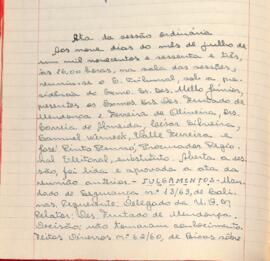 Ata da sessão ordinária
Aos nove dias do mês de julho de
um mil novecentos e sessenta e três,
às 16,00 horas, na sala das sessões,
reuniu-se o E. Tribunal, sob a pre-
sidência do Exmo. Sr. Des. Mello Júnior,
presentes os Exmos. Srs. Des. Furtado de
Mendonça e Ferreira de Oliveira, Drs.
Correia de Almeida, Cesar Silveira
Samuel Werneck, Valle Ferreira e
José Pinto Renno, Procurador Regio-
nal Eleitoral, substituto. Aberta a ses-
são, foi lida e aprovada a ata da
reunião anterior. - JULGAMENTOS - Man-
dado de Segurança n.º 13/63, de
Requerente: Delegado da U.D.N
Relator: Des. Furtado de Mendonça.
Decisão: não tomaram conhecimento.
Feitos Diversos n.º 62/60, de